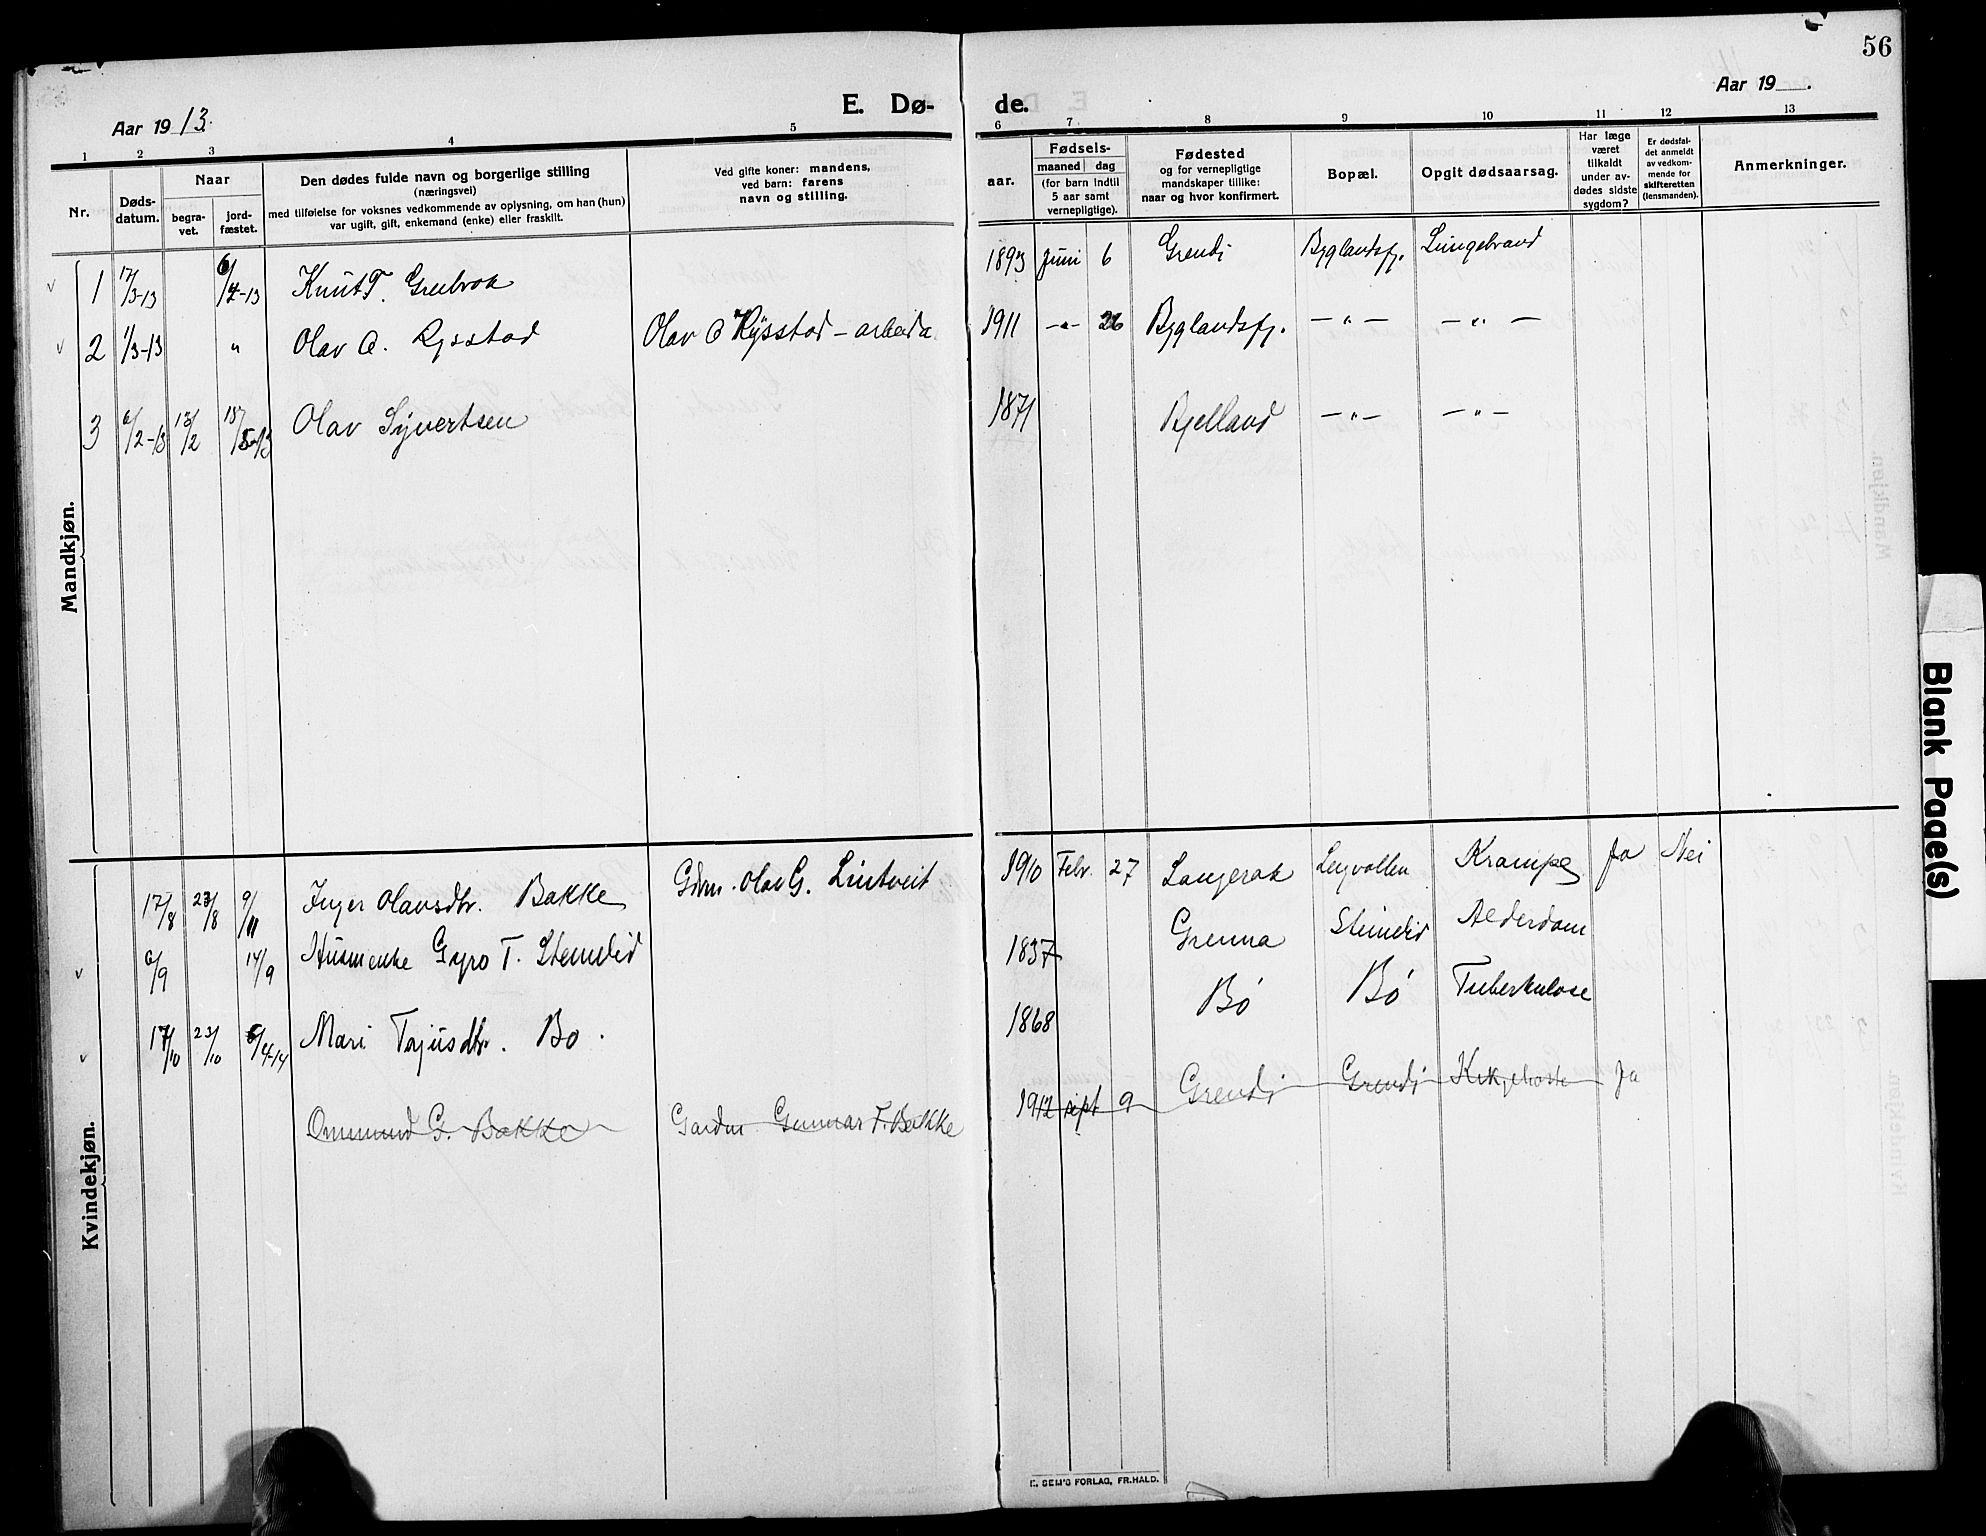 56
Aar 1913. E. Dø- de. Aar 19 .
1 2 3 4 5 6 7 8 9 10 11 12 13
Nr.
Døds-
datum.
Naar
begra-
vet.
jord-
fæstet.
Den dødes fulde navn og borgerlige stilling
(næringsvei)
med tilføielse for voksnes vedkommende av oplysning, om han (hun)
var ugift, gift, enkemand (enke) eller fraskilt.
Ved gifte koner: mandens,
ved barn: farens
navn og stilling.
Fødsels-
aar.
maaned dag
(for barn indtil
5 aar samt
vernepligtige).
Fødested
og for vernepligtige
mandskaper tillike:
naar og hvor konfirmert.
Bopæl.
Opgit dødsaarsag.
Har læge
været
tilkaldt
under av-
dødes sidste
sygdom?
Er dødsfal-
det anmeldt
av vedkom-
mende for
skifteretten
(lensmanden).
Anmerkninger.
Mandkjøn.
1 17/3-13 6/4-13 Knut T. 1893 Juni 6 Grendi Byglandsfj. Lungebrand
2 1/3-13 " Olav O. Rysstad Olav O Rysstad - arbeida 1911 -"- 26 Byglandsfj. -"- -"-
3 6/2-13 13/2 /5-13 Olav Syvertsen 1871 Bjelland -"- -"-
Kvindekjøn.
17/8 23/8 9/11 Inger Olavsdtr. Bakke Gdm. Olav G. Lintveit 1910 Febr. 27 Langerak Krampe Ja Nei
6/9 14/9 Husmenke Gyro T. 1837 Grenna Alderdom
17/10 23/10 6/4-14 Mari Tajusdtr. Bø. 1868 Bø Bø Tuberkulose
Ommund G. Bakke Gardm. Gunnar T. Bakke 1912 sept 9 Grendi Grendi Kikhoste Ja
E. SEM'S FORLAG, FR.HALD.
Blank Page(s)